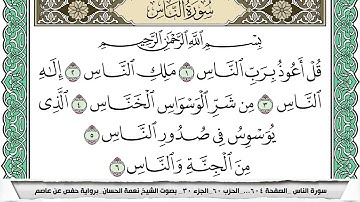 سُورَةُ النَّاسِ
بِسْمِ اللَّهِ الرَّحْمَٰنِ الرَّحِيمِ
قُلْ أَعُوذُ بِرَبِّ النَّاسِ ١ مَلِكِ النَّاسِ ٢ إِلَٰهِ
النَّاسِ ٣ مِن شَرِّ الْوَسْوَاسِ الْخَنَّاسِ ٤ الَّذِي
يُوَسْوِسُ فِي صُدُورِ النَّاسِ ٥
مِنَ الْجِنَّةِ وَالنَّاسِ ٦
سورة الناس _الصفحة ٦٠٤_ الحزب ٦٠_ الجزء ٣٠ _ بصوت الشيخ نعمة الحسان_ برواية حفص عن عاصم